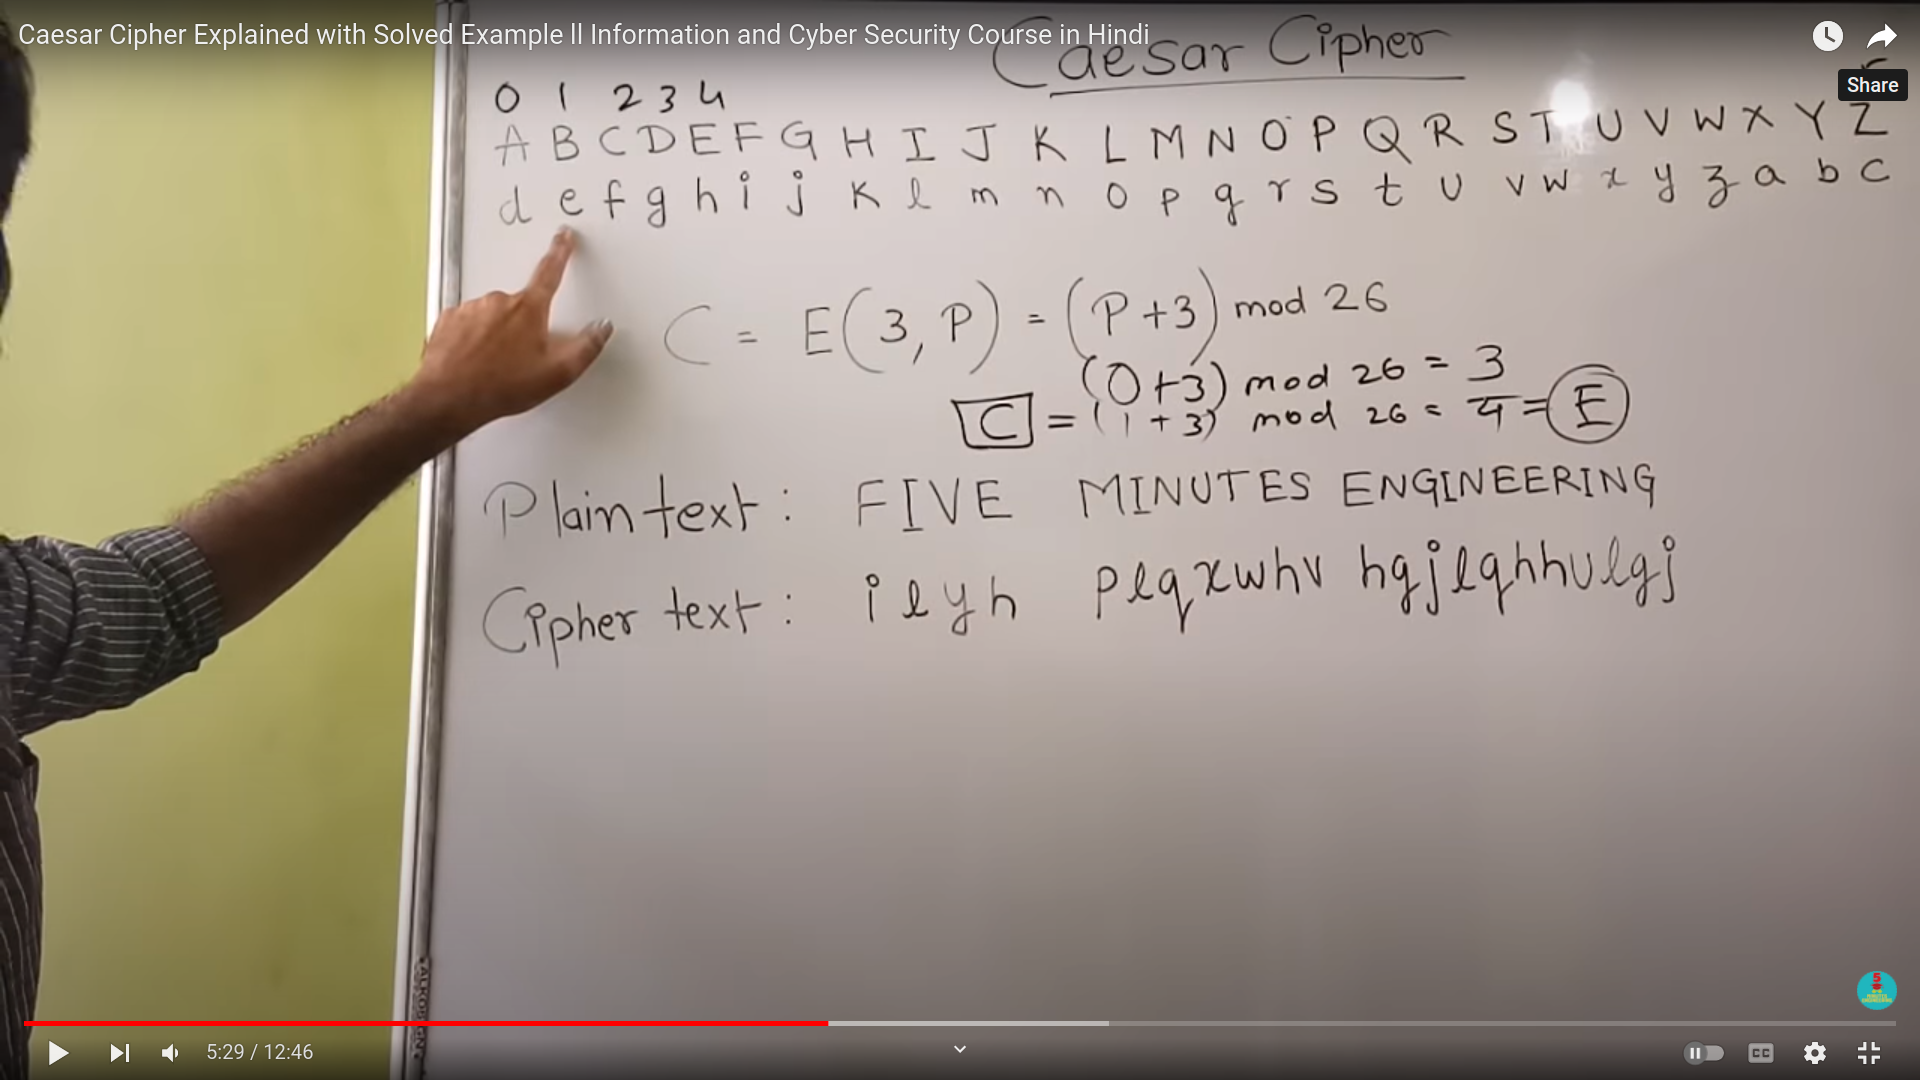 Caesar Cipher Explained with Solved Example ll Information and Cyber Security Course in Hindi
Caesar Cipher
Share
0 1 2 3 4
A B C D E F G H I J K L M N O P Q R S T U V W X Y Z
d e f g h i j k l m n o p q r s t u v w x y z a b c
C = E(3, P) = (P+3) mod 26
(0+3) mod 26 = 3
C = (1+3) mod 26 = 4 = E
Plain text : FIVE MINUTES ENGINEERING
Cipher text : ilyh plqxwhv hgjlqhhulgj
5:29 / 12:46
CC